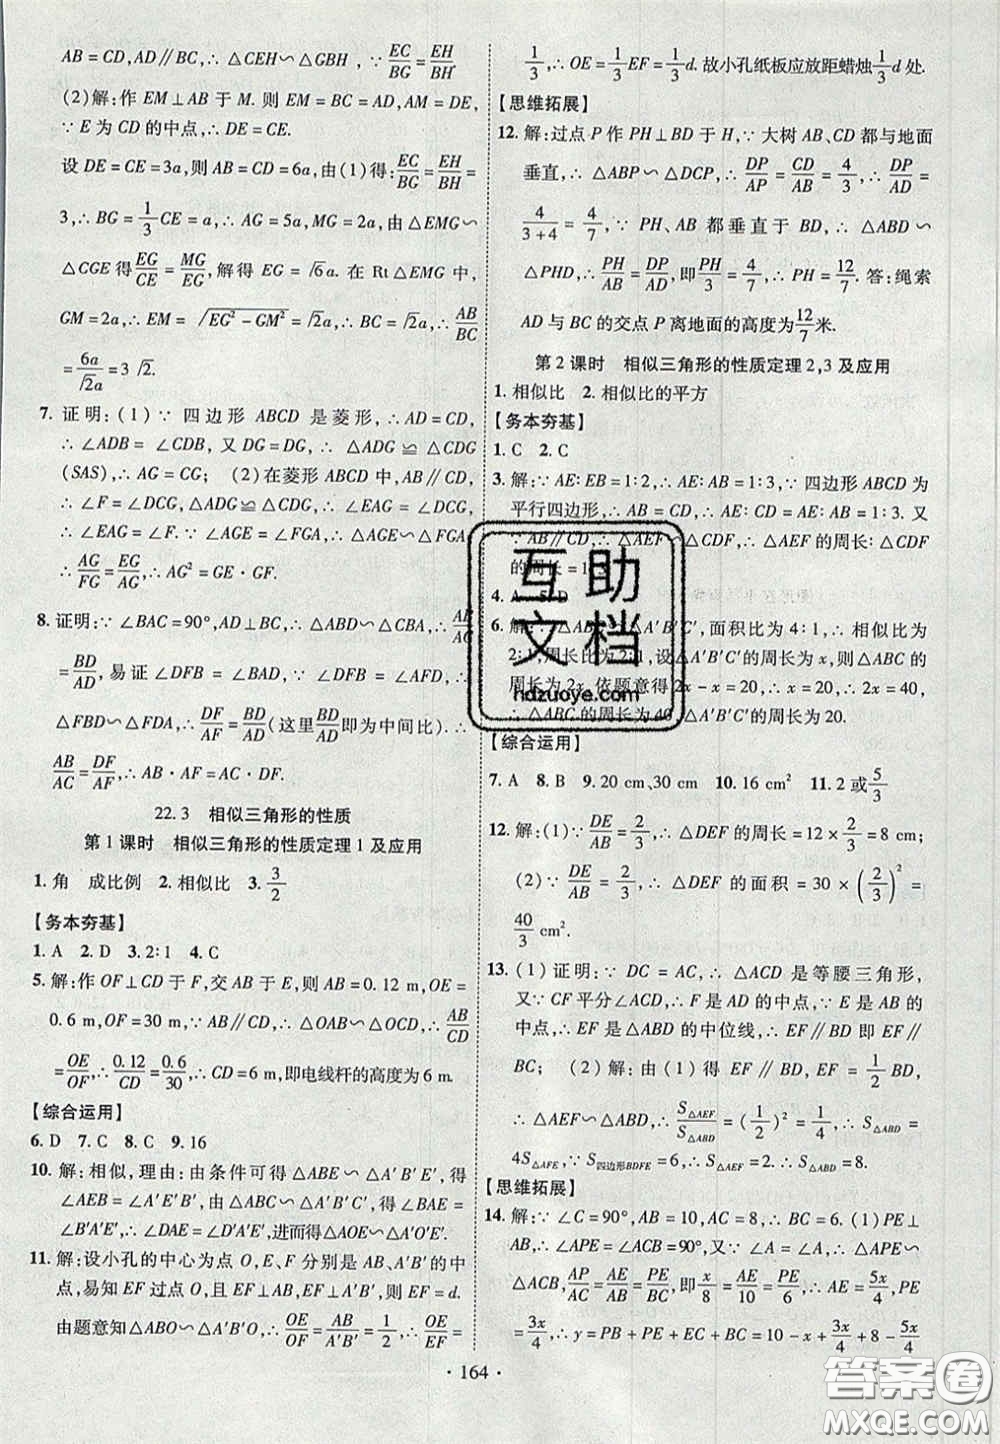 AB=CD,AD∥BC,∴△CEH∽△GBH,∵EC/BG=EH/BH.
(2)解:作 EM⊥AB 于 M. 则 EM=BC=AD,AM=DE,
∵E 为 CD 的中点,∴DE=CE.
设 DE=CE=3a,则 AB=CD=6a,由(1)得:EC/BG=EH/BH=
3,∴BG=1/3CE=a,∴AG=5a,MG=2a,由△EMG∽
△CGE得EG/CE=MG/EG,解得 EG=√6a.在 Rt△EMG 中,
GM=2a,∴EM=√(EG²-GM²)=√2a,∴BC=√2a,∴AB/BC
=6a/√2a=3√2.
7. 证明:(1)∵四边形 ABCD 是菱形,∴AD=CD,
∴∠ADB=∠CDB,又 DG=DG,∴△ADG≌△CDG
(SAS),∴AG=CG; (2)在菱形 ABCD 中,AB∥CD,
∴∠F=∠DCG,△ADG≌△CDG,∴∠EAG=∠DCG,
∴∠EAG=∠F.∵∠AGE=∠FGA,∴△EAG∽△AFG,
∴AG/FG=EG/AG,∴AG²=GE·GF.
8. 证明:∵∠BAC=90°,AD⊥BC,∴△ABD∽△CBA,∴AB/AC
=BD/AD,易证∠DFB=∠DAF,∠BDF=∠FDA,∴
△FBD∽△AFD,∴DF/AF=BD/AD(这里BD/AD即为中间比).∴
AB/AC=DF/AF,∴AB·AF=AC·DF.
22.3 相似三角形的性质
第1课时 相似三角形的性质定理1及应用
1. 角 成比例 2. 相似比 3. 3/2
【务本夯基】
1. A 2. D 3. 2:1 4. C
5. 解:作 OF⊥CD 于 F,交 AB 于 E,则 AB=0.12 m,OE=
0.6 m,OF=30 m,∵AB∥CD,∴△OAB∽△OCD,∴AB/CD
=OE/OF,∴0.12/CD=0.6/30,∴CD=6 m,即电线杆的高度为 6 m.
【综合运用】
6. D 7. C 8. C 9. 16
10. 解:相似,理由:由条件可得△ABE∽△A′B′E′,得
∠AEB=∠A′E′B′,由△ABC∽△A′B′C′,得∠BAE=
∠B′A′E′,∴∠DAE=∠D′A′E′,进而得△AOE∽△A′O′E′.
11. 解:设小孔的中心为点 O,E、F 分别是 AB、A′B′的中
点,易知 EF 过点 O,且 EF⊥AB,EF⊥A′B′,则 EF=d.
由题意知△ABO∽△A′B′O,∴OE/OF=AB/A′B′=1/2,∴OE/EF=
1/3,∴OE=1/3EF=1/3d.故小孔纸板应放距蜡烛1/3d 处.
【思维拓展】
12. 解:过点 P 作 PH⊥BD 于 H,∵大树 AB、CD 都与地面
垂直,∴△ABP∽△DCP,∴DP/AP=CD/AB=4/3,∴DP/AD=
4/(3+4)=4/7,∵PH、AB 都垂直于 BD,∴△ABD∽
△PHD,∴PH/AB=DP/AD,即PH/3=4/7,∴PH=12/7.答:绳索
AD 与 BC 的交点 P 离地面的高度为12/7米.
第2课时 相似三角形的性质定理2,3及应用
1. 相似比 2. 相似比的平方
【务本夯基】
1. C 2. C
3. 解:∵AE:EB=1:2,∴AE:AB=1:3.∵四边形 ABCD 为
平行四边形,∴AB=CD,∴AE:CD=AE:AB=1:3.又
∵AB∥CD,∴△AEF∽△CDF,∴△AEF 的周长:△CDF
的周长=1:3.
4. A 5. D
6. 解:∵△ABC∽△A′B′C′,面积比为 4:1,∴相似比为
2:1,周长比为 2:1,设△A′B′C′的周长为 x,则△ABC 的
周长为 2x,依题意得 2x-x=20,∴x=20,2x=40,
∴△ABC 的周长为 40,△A′B′C′的周长为 20.
【综合运用】
7. A 8. B 9. 20 cm、30 cm 10. 16 cm² 11. 2 或5/3
12. 解:(1)∵DE/AB=2/3,∴△DEF 的周长=12×2/3=8 cm;
(2)∵DE/AB=2/3,∴△DEF 的面积=30×(2/3)²=
40/3 cm².
13. (1)证明:∵DC=AC,∴△ACD 是等腰三角形,
又∵CF 平分∠ACD,∴F 是 AD 的中点,∵E 是 AB 的
中点,∴EF 是△ABD 的中位线,∴EF∥BD 即 EF∥
BC; (2)解:由(1)得 EF∥BD,EF=1/2BD,
∴△AEF∽△ABD,∴S△AEF/S△ABD=(1/2)²=1/4,∴S△ABD=
4S△AFE,∵S四边形BDFE=6,∴S△AEF=2.∴S△ABD=8.
【思维拓展】
14. 解:∵∠C=90°,AB=10,AC=8,∴BC=6.(1)PE⊥
AB,∴∠APE=∠ACB=90°,又∵∠A=∠A,∴△APE∽
△ACB,AP/AC=AE/AB=PE/BC,即x/8=AE/10=PE/6,∴AE=5x/4,PE
=3x/4,∴y=PB+PE+EC+BC=10-x+3x/4+8-5x/4
·164·
互助
文档
hdzuoye.com
答案圈
MXQE.COM